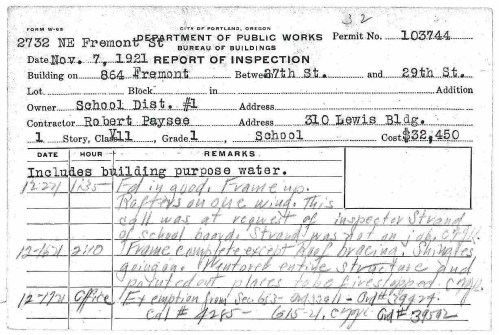 32
FORM W-69
CITY OF PORTLAND, OREGON
2732 NE Fremont St DEPARTMENT OF PUBLIC WORKS Permit No. 103744
BUREAU OF BUILDINGS
Date Nov. 7, 1921 REPORT OF INSPECTION
Building on 864 Fremont Between 27th St. and 29th St.
Lot Block in Addition
Owner School Dist. #1 Address
Contractor Robert Paysee Address 310 Lewis Bldg.
1 Story, Class VII, Grade 1 School Cost $32,450
DATE HOUR REMARKS
Includes building purpose water.
1135 Fd in good. Frame up.
Rafters on one wing. This
call was at request of inspector Strand
of school board. Strand was not on job.
12-16-21 2:10 Frame complete except roof bracing Shingles
going on. entire structure and
pointed out places to be firestopped
12-17-21 Office Exemption from Sec. 653 - Ord#
Call # 4285- 615-21. Ord# 39592